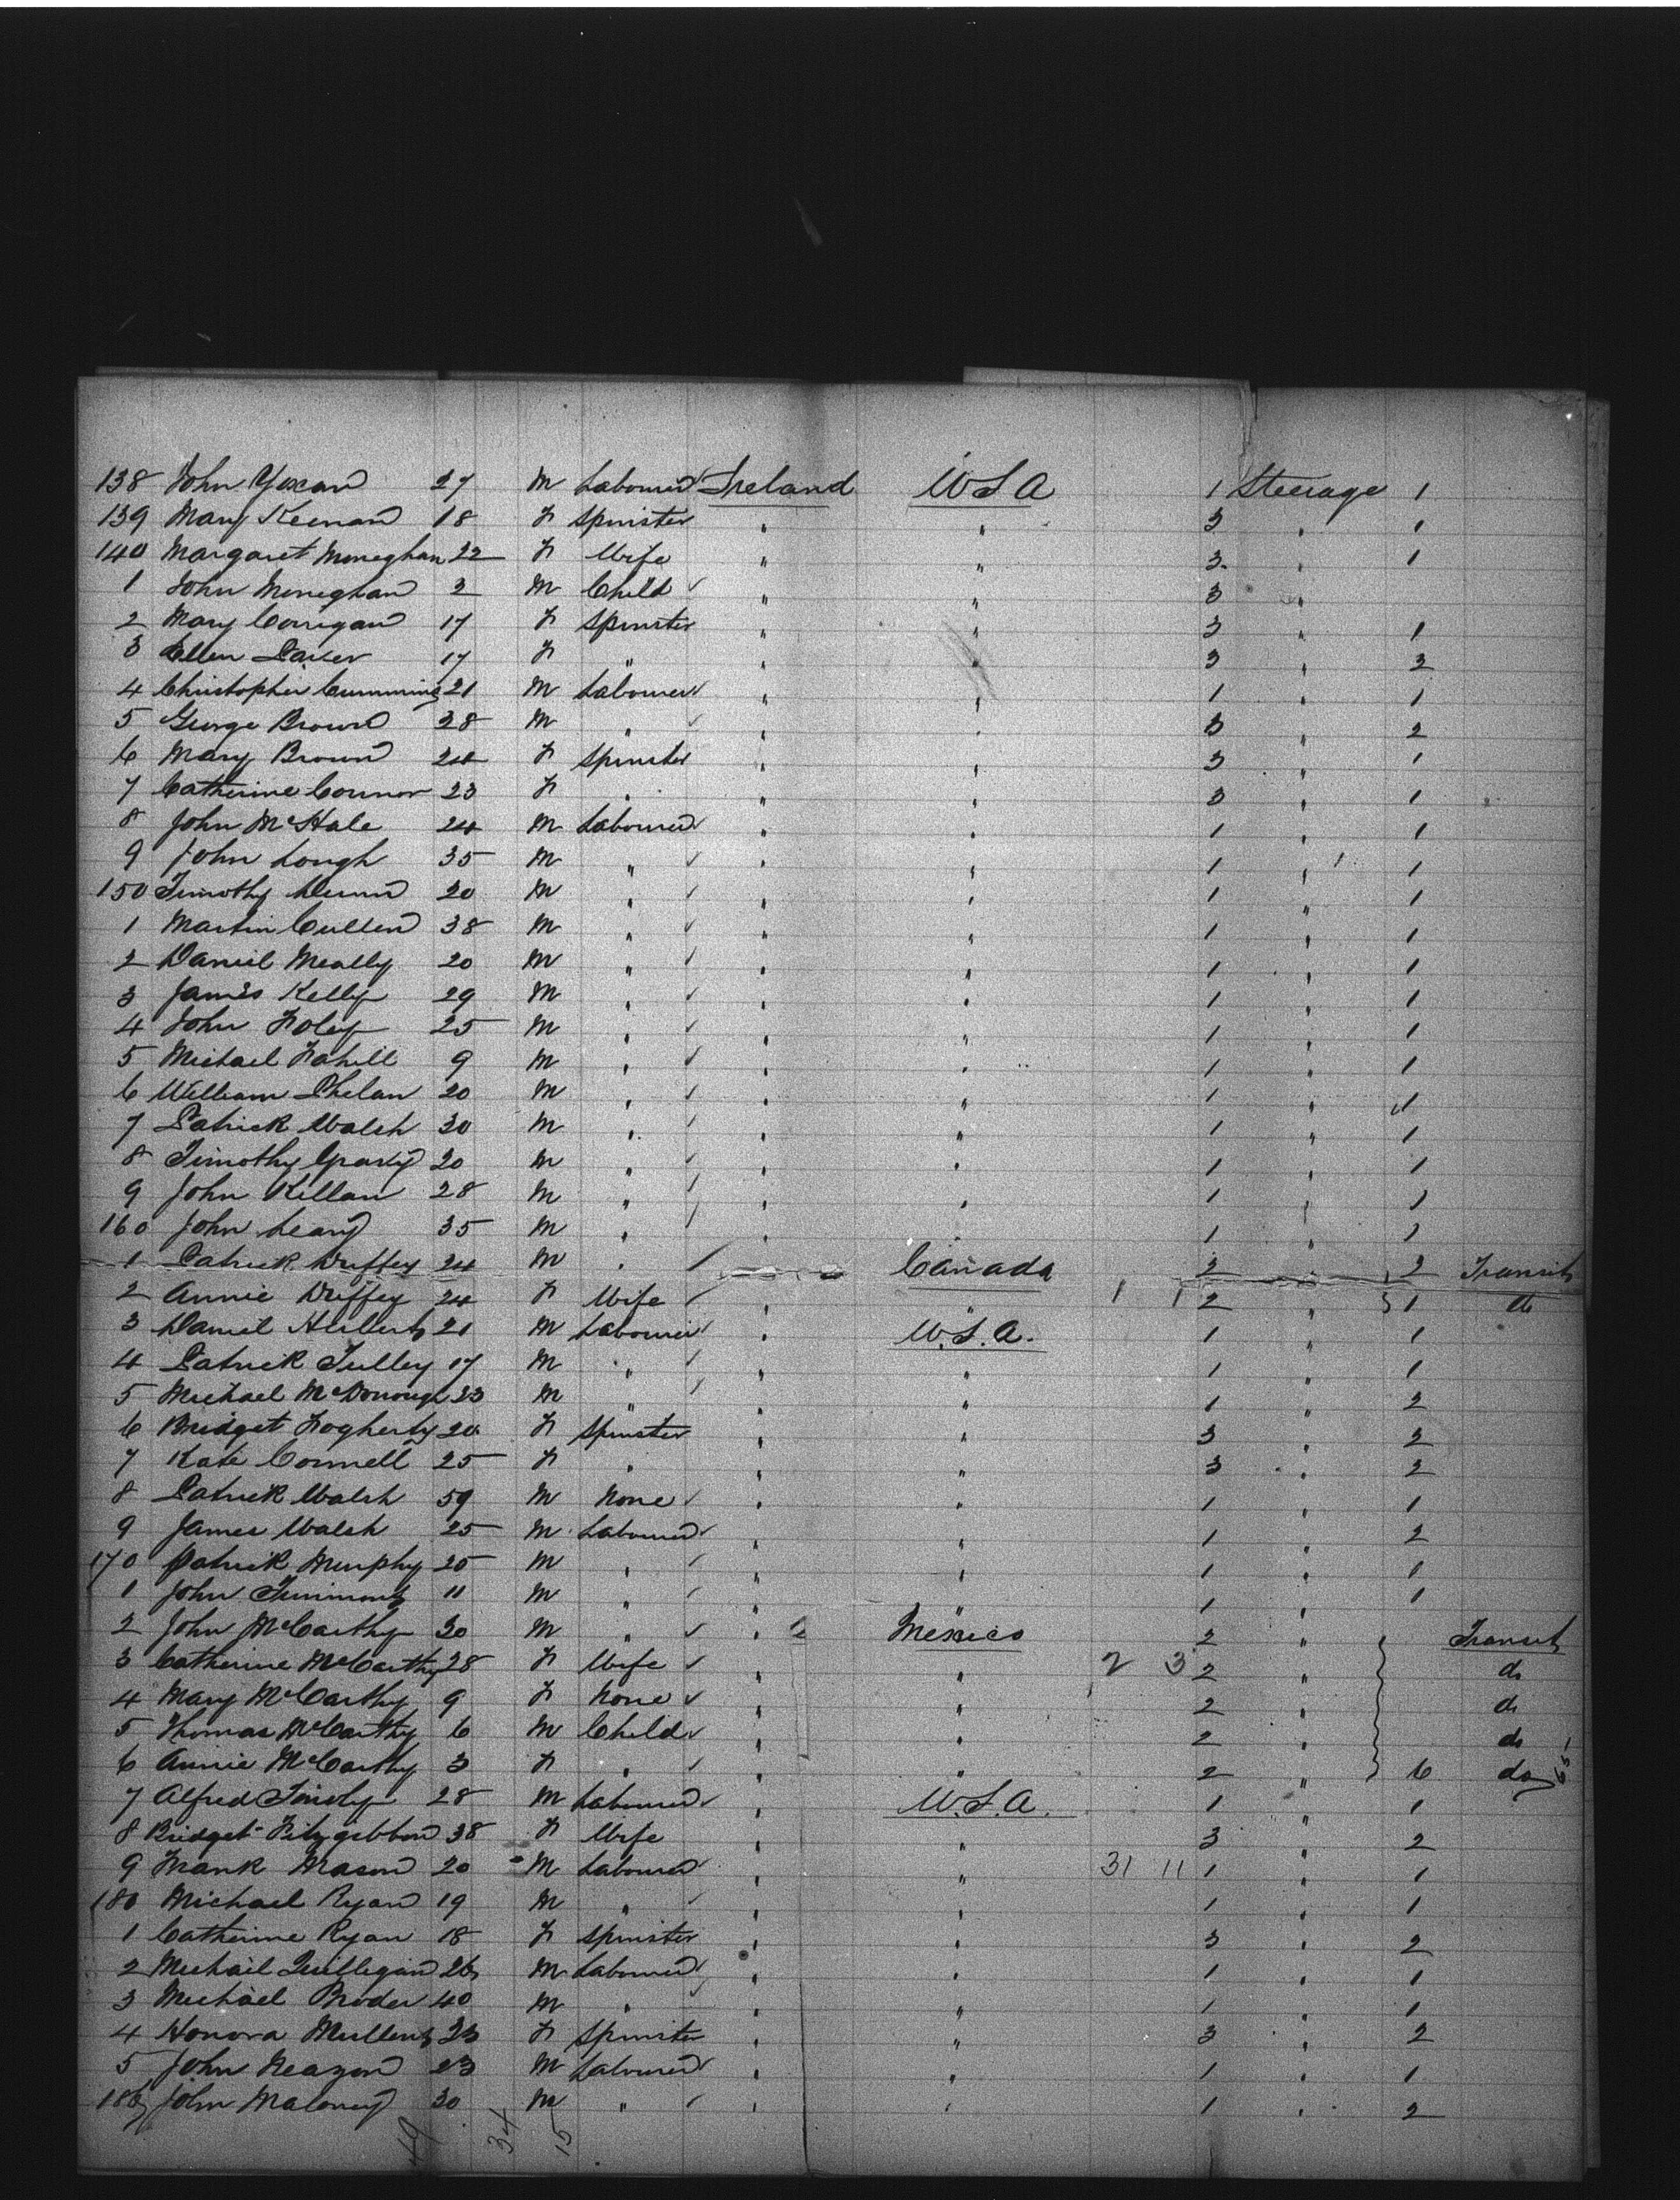 138 John 27 M Labourer Ireland USA 1 Steerage 1
139 Mary Keenan 18 F Spinster " " 3 " 1
140 Margaret Moneghan 22 F Wife " " 3 " 1
1 John Moneghan 2 M Child " " 3 "
2 Mary Corrigan 17 F Spinster " " 3 " 1
3 Ellen 17 F " " " 3 " 2
4 Christopher Cummins 21 M Labourer " " 1 " 1
5 George Brown 28 M " " " 3 " 2
6 Mary Brown 24 F Spinster " " 3 " 1
7 Catherine Connor 23 F " " " 3 " 1
8 John McHale 24 M Labourer " " 1 " 1
9 John Lough 35 M " " " 1 " 1
150 Timothy Dunn 20 M " " " 1 " 1
1 Martin Cullen 38 M " " " 1 " 1
2 Daniel Meally 20 M " " " 1 " 1
3 James Kelly 29 M " " " 1 " 1
4 John Foley 25 M " " " 1 " 1
5 Michael Fahill 9 M " " " 1 " 1
6 William Phelan 20 M " " " 1 " 1
7 Patrick Walsh 30 M " " " 1 " 1
8 Timothy 20 M " " " 1 " 1
9 John Killan 28 M " " " 1 " 1
160 John Leary 35 M " " " 1 " 1
1 Patrick Duffey 24 M " Canada 2 2 Transit
2 Annie Duffey 24 F Wife " " 1 1 2 " 1 do
3 Daniel 21 M Labourer " U.S.A. 1 " 1
4 Patrick Tulley 17 M " " " 1 " 1
5 Michael McDonough 23 M " " " 1 " 2
6 Bridget Fogherty 20 F Spinster " " 3 " 2
7 Kate Connell 25 F " " " 3 " 2
8 Patrick Walsh 59 M None " " 1 " 1
9 James Walsh 25 M Labourer " 1 " 2
170 Patrick Murphy 25 M " " " 1 " 1
1 John 11 M " " " 1 " 1
2 John McCarthy 30 M " " Mexico 2 " Transit
3 Catherine McCarthy 28 F Wife " " 2 3 2 " do
4 Mary McCarthy 9 F None " " 2 " do
5 Thomas McCarthy 6 M Child " " 2 " do
6 Annie McCarthy 3 F " " " 2 " 6 do
7 Alfred 28 M Labourer " U.S.A. 1 " 1
8 Bridget Fitzgibbon 38 F Wife " " 3 " 2
9 Frank Mason 20 M Labourer " " 31 11 1 " 1
180 Michael Ryan 19 M " " " 1 " 1
1 Catherine Ryan 18 F Spinster " " 3 " 2
2 Michael Quilligan 26 M Labourer " " 1 " 1
3 Michael Broder 40 M " " " 1 " 1
4 Honora Mullens 23 F Spinster " " 3 " 2
5 John 23 M Labourer " " 1 " 1
186 John Maloney 30 M " " " 1 " 2
49 34 15